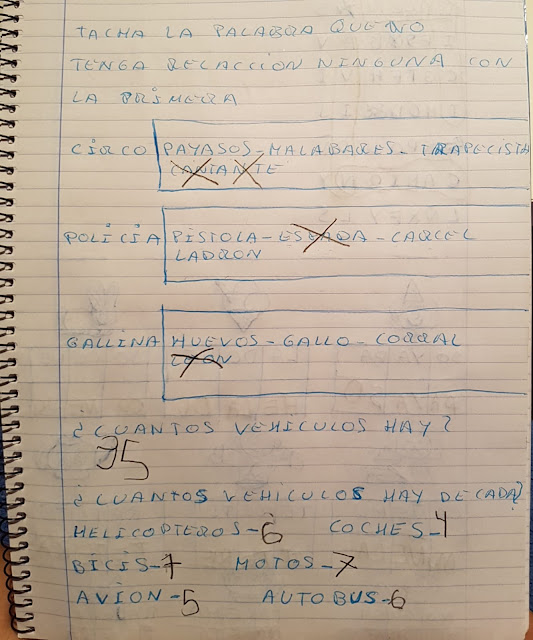 TACHA LA PALABRA QUE NO
TENGA RELACCION NINGUNA CON
LA PRIMERA
CIRCO PAYASOS-MALABARES-TRAPECISTA
CANTANTE
POLICIA PISTOLA-ESPADA-CARCEL
LADRON
GALLINA HUEVOS-GALLO-CORRAL
LEON
¿CUANTOS VEHICULOS HAY?
35
¿CUANTOS VEHICULOS HAY DE CADA?
HELICOPTEROS-6 COCHES-4
BICIS-7 MOTOS-7
AVION-5 AUTOBUS-6